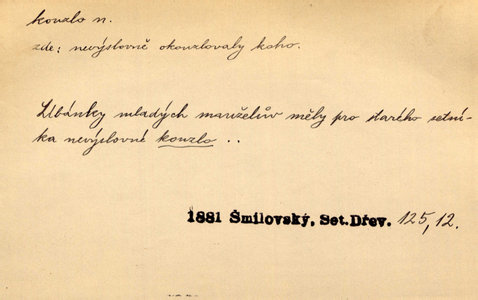 kouzlo n.
zde: nevýslovně okouzlovaly koho.
Líbánky mladých manželův měly pro starého setní-
ka nevýslovné kouzlo ..
1881 Šmilovský, Set.Dřev. 125,12.